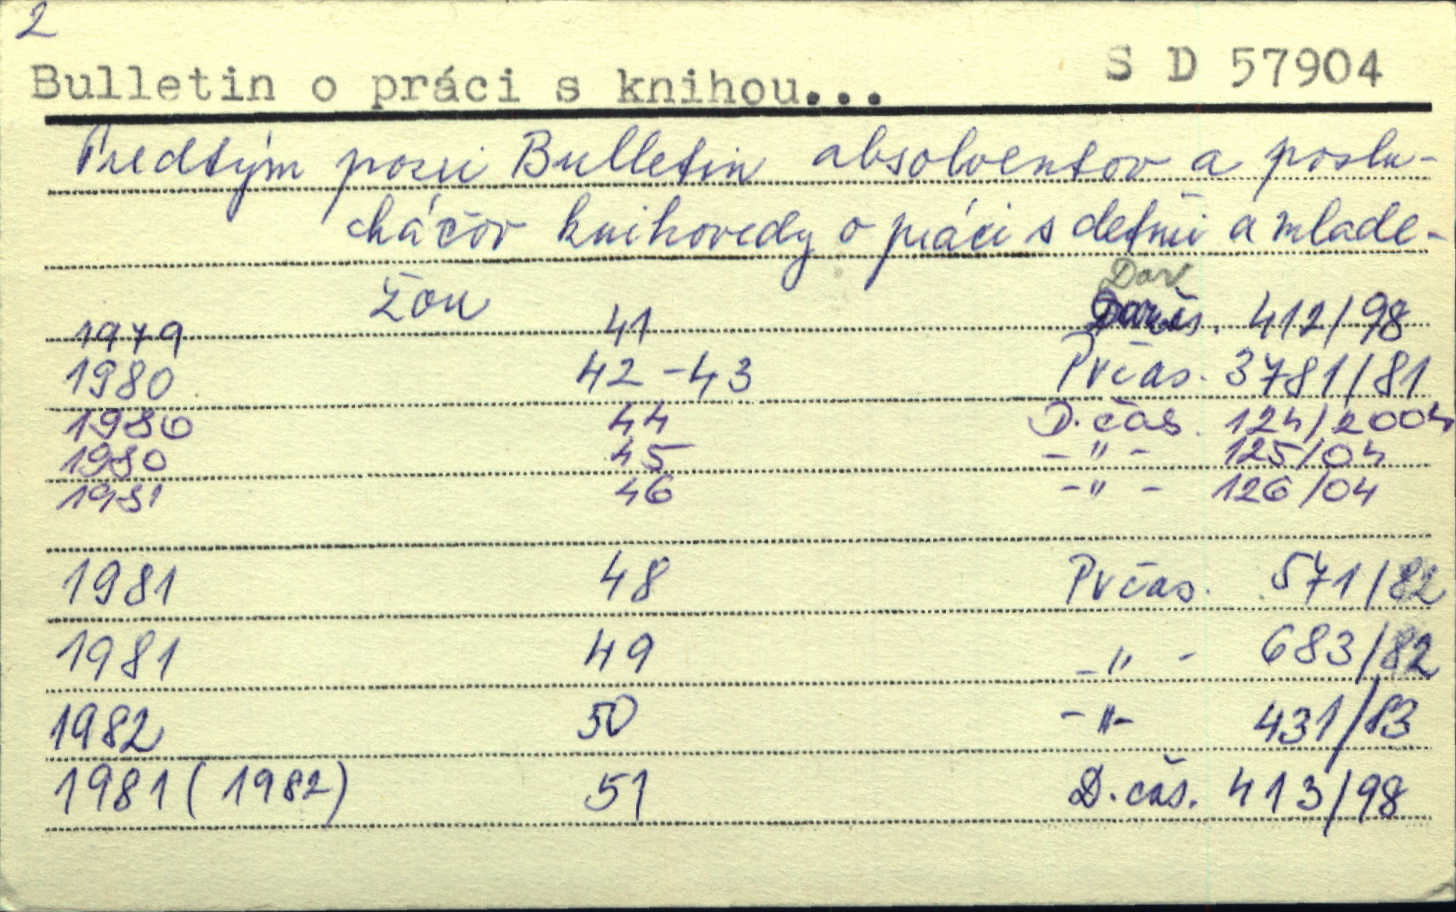 2
Bulletin o práci s knihou...
S D 57904
Predtým pozri Bulletin absolventov a poslu-
cháčov knihovedy o práci s deťmi a mlade-
žou
Dar
1979 41 čs. 412/98
1980 42-43 Pvčas. 3781/81
1980 44 D. čas. 124/2004
1980 45 -"- 125/04
1981 46 -"- 126/04
1981 48 Pvčas. 571/82
1981 49 -"- 683/82
1982 50 -"- 431/83
1981 (1982) 51 D. čas. 413/98